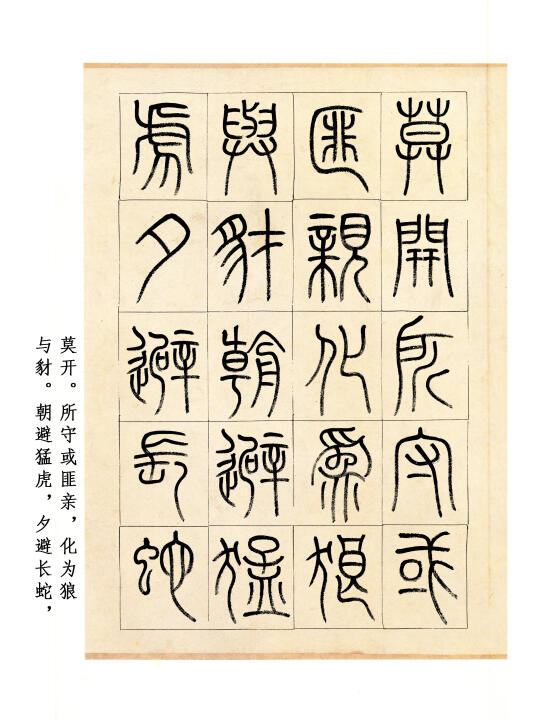 莫開所守或
匪親化爲狼
與豺朝避猛
虎夕避長蛇
莫开。所守或匪亲，化为狼
与豺。朝避猛虎，夕避长蛇，